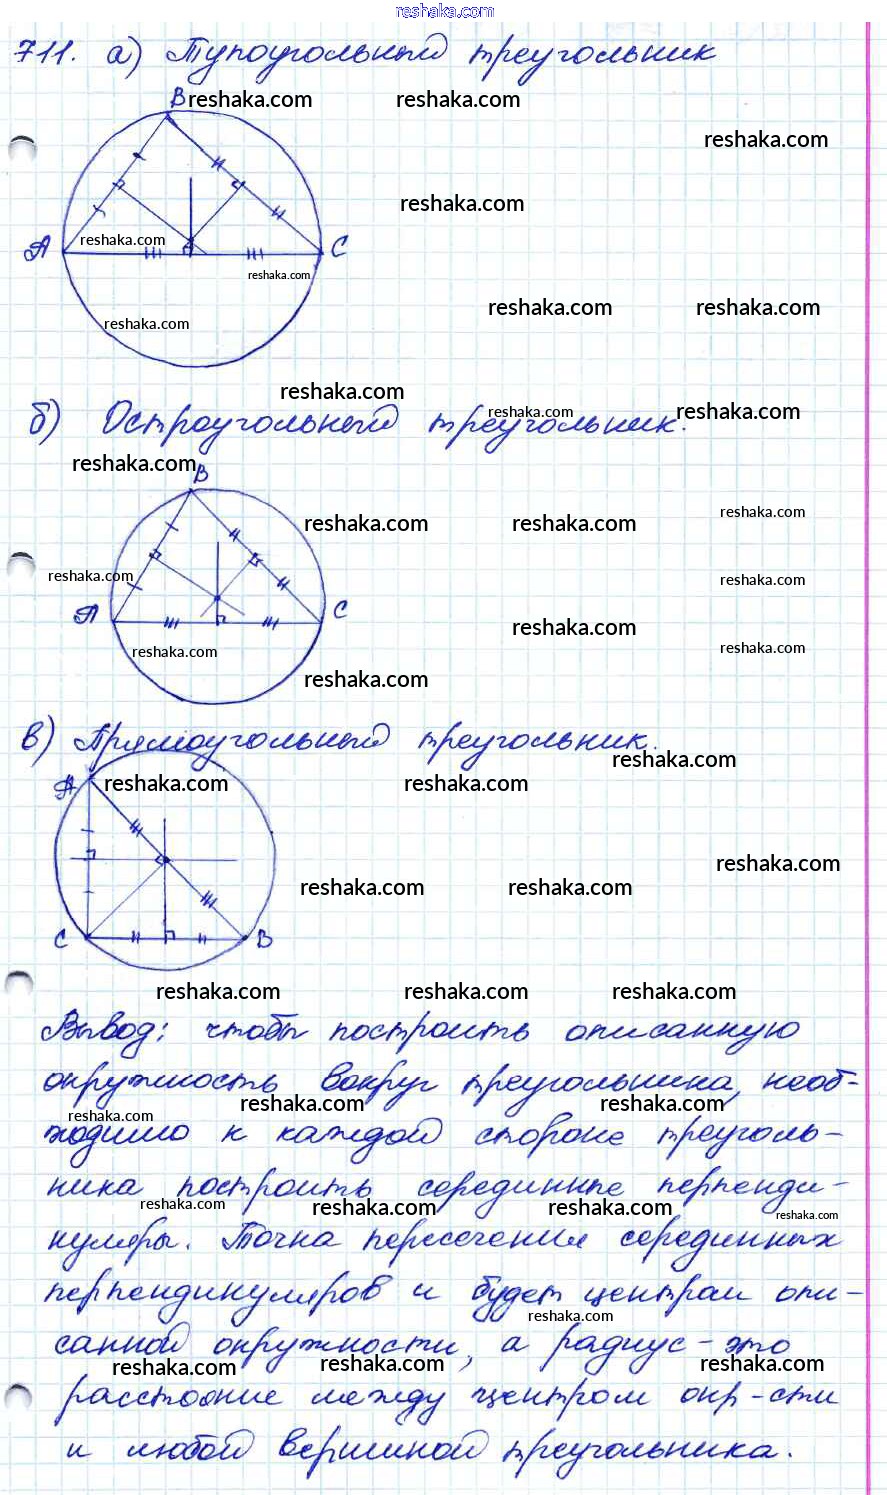 reshaka.com
711. а) Тупоугольный треугольник
B reshaka.com reshaka.com
reshaka.com
reshaka.com
A reshaka.com C
reshaka.com
reshaka.com reshaka.com
reshaka.com
reshaka.com
б) Остроугольный треугольник.
reshaka.com reshaka.com
reshaka.com
B
reshaka.com
reshaka.com reshaka.com
reshaka.com reshaka.com
A C
reshaka.com
reshaka.com reshaka.com
reshaka.com
в) Прямоугольный треугольник.
reshaka.com
A reshaka.com reshaka.com
reshaka.com
reshaka.com reshaka.com
C B
reshaka.com reshaka.com reshaka.com
Вывод: чтобы построить описанную
окружность вокруг треугольника, необ-
reshaka.com reshaka.com
reshaka.com
ходимо к каждой стороне треуголь-
ника построить серединные перпенди-
reshaka.com reshaka.com reshaka.com reshaka.com
куляры. Точка пересечения серединных
перпендикуляров и будет центром опи-
reshaka.com
санной окружности, а радиус - это
reshaka.com reshaka.com reshaka.com
расстояние между центром окр-сти
и любой вершиной треугольника.